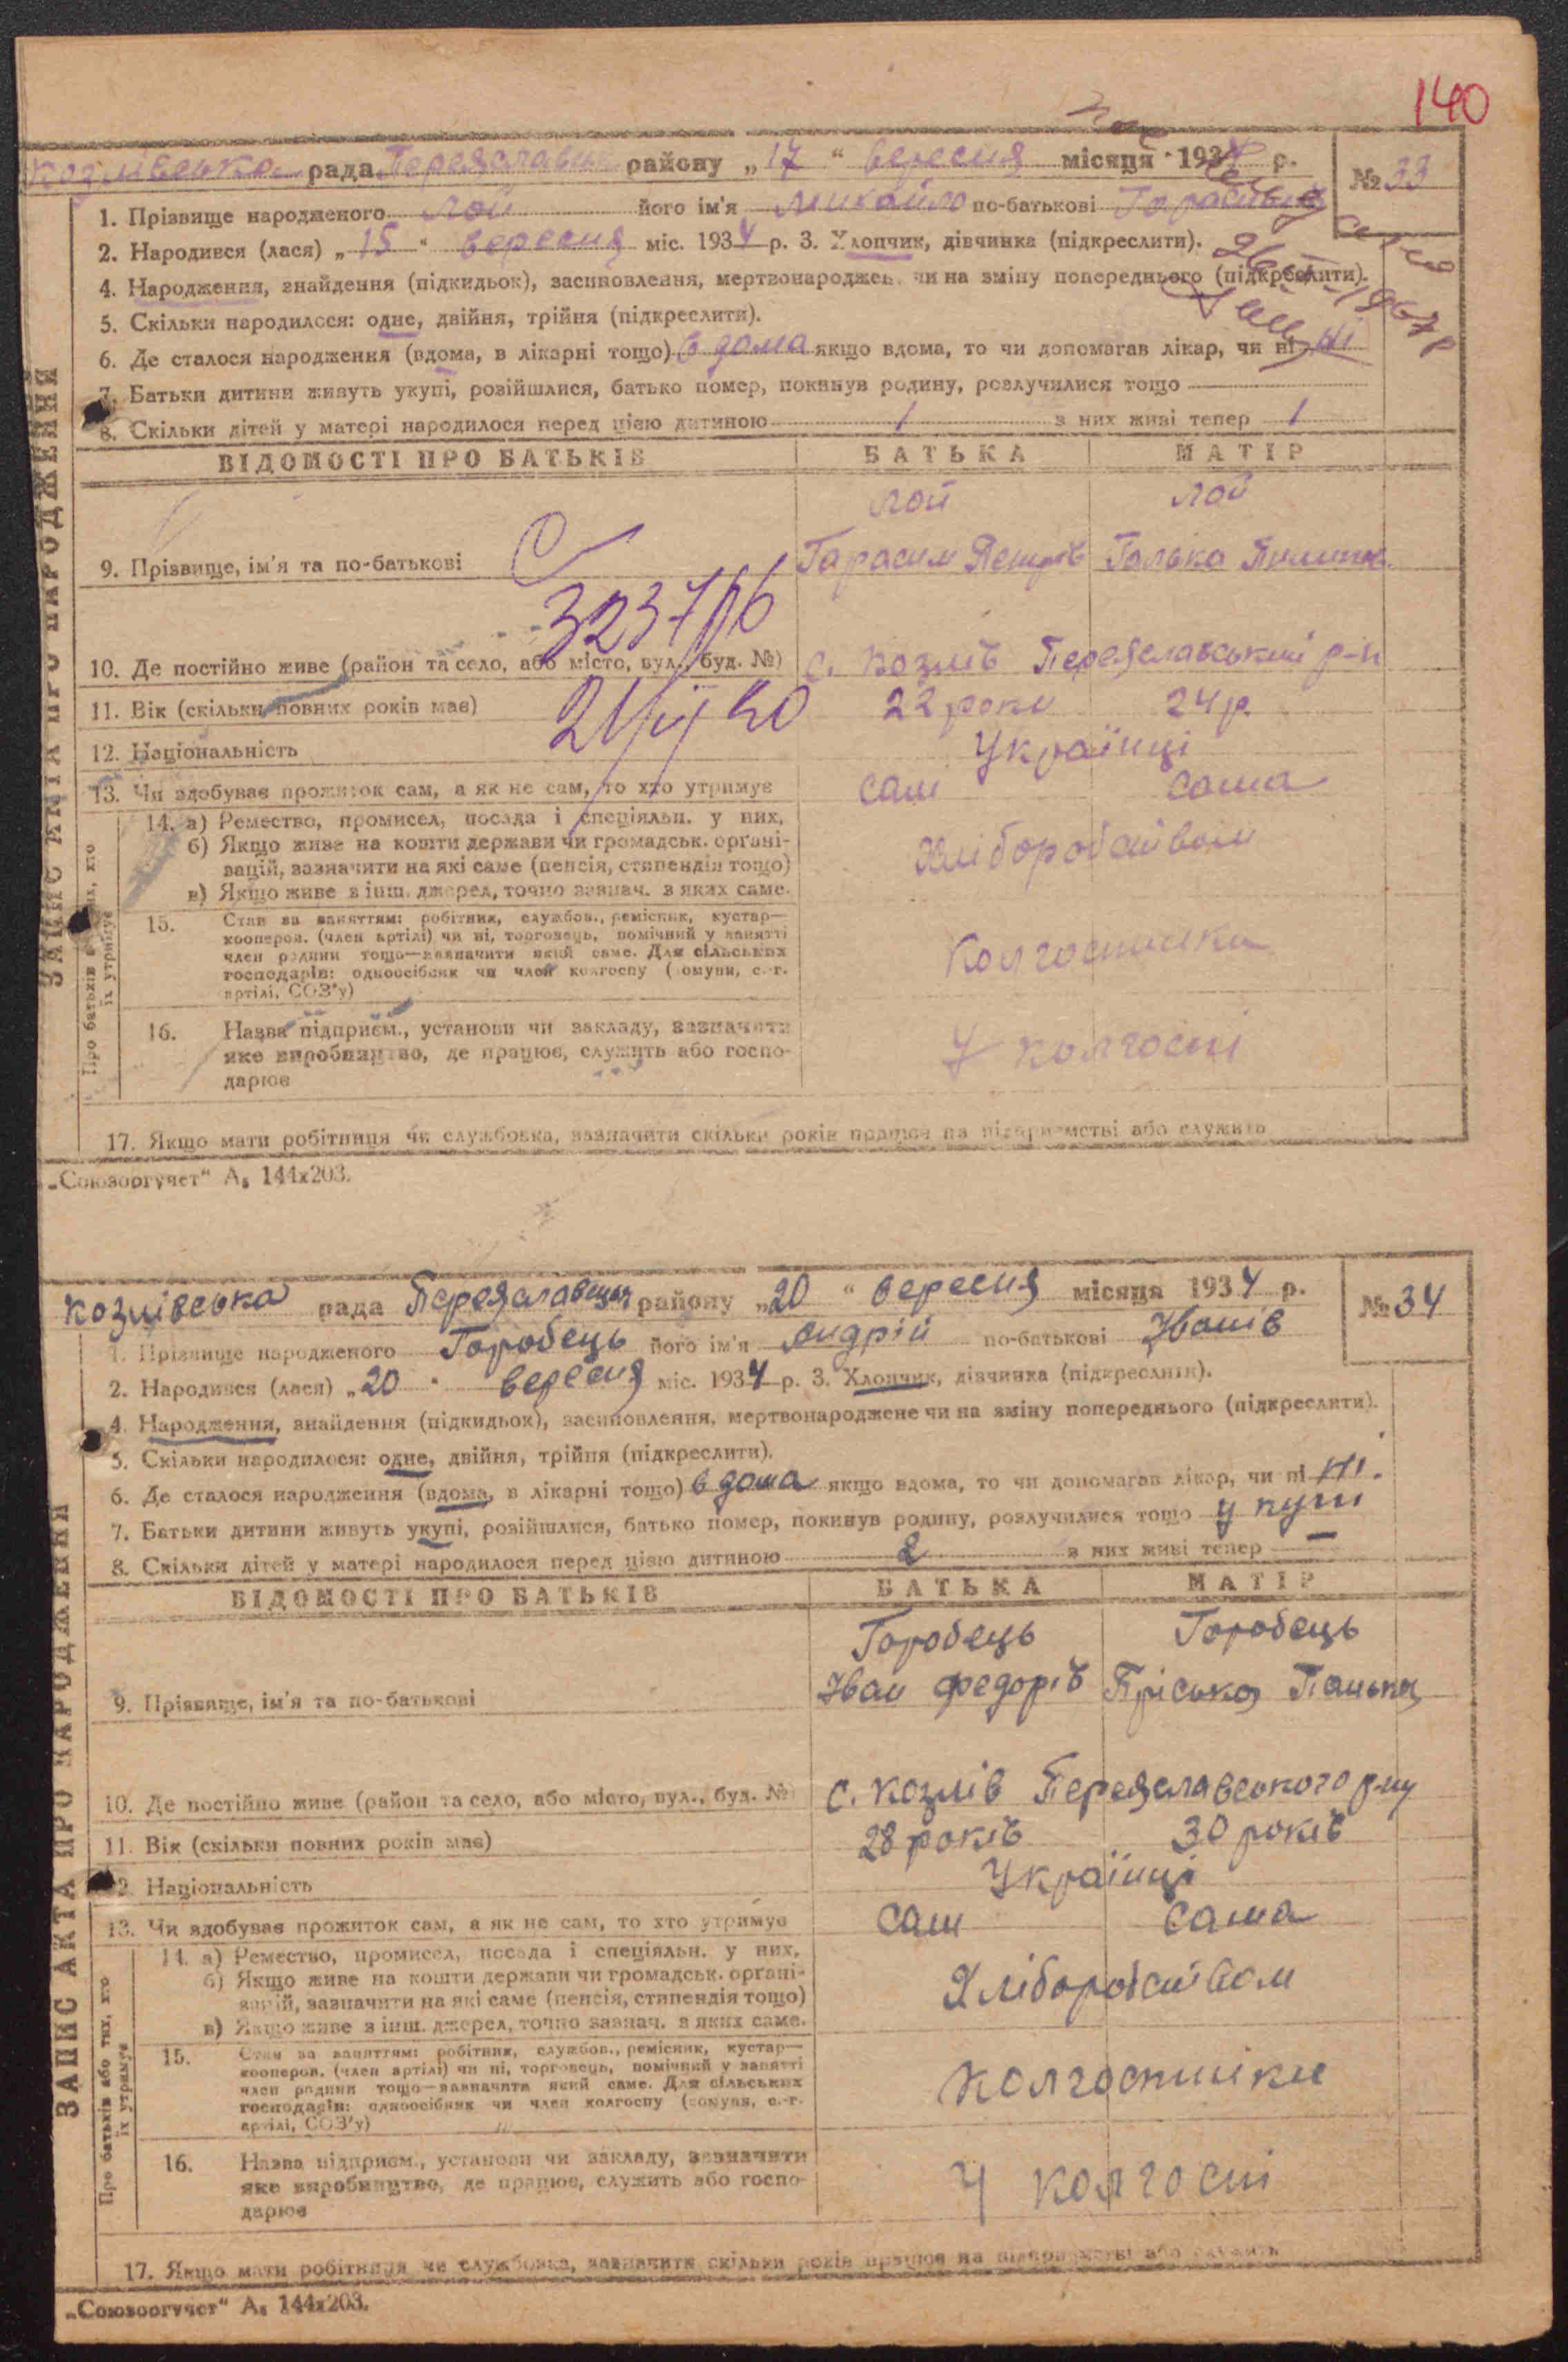 140
Козлівська рада Переяславськ району „17“ вересня місяця 1934 р. № 33
1. Прізвище народженого Лой його ім'я Михайло по-батькові Тарасивич
2. Народився (лася) „15“ вересня міс. 1934 р. 3. Хлопчик, дівчинка (підкреслити).
4. Народження, знайдення (підкидьок), засиновлення, мертвонароджен. чи на зміну попереднього (підкреслити).
5. Скільки народилося: одне, двійня, трійня (підкреслити).
6. Де сталося народження (вдома, в лікарні тощо) в дома якщо вдома, то чи допомагав лікар, чи ні ні
7. Батьки дитини живуть укупі, розійшлися, батько помер, покинув родину, розлучилися тощо
8. Скільки дітей у матері народилося перед цією дитиною 1 з них живі тепер 1
ВІДОМОСТІ ПРО БАТЬКІВ БАТЬКА МАТІР
Лой Лой
9. Прізвище, ім'я та по-батькові Тарасим Петрів Галька
323796
10. Де постійно живе (район та село, або місто, вул., буд. №) с. Козлів Переяславський р-н
11. Вік (скільки повних років має) 22 роки 24 р.
12. Національність Українці
13. Чи здобуває прожиток сам, а як не сам, то хто утримує сам сама
14. а) Ремество, промисел, посада і спеціяльн. у них,
б) Якщо живе на кошти держави чи громадськ. орґані-
зацій, зазначити на які саме (пенсія, стипендія тощо)
в) Якщо живе з інш. джерел, точно зазнач. з яких саме.
Хліборобством
15. Стан за заняттям: робітник, службов., ремісник, кустар—
кооперов. (член артілі) чи ні, торговець, помічний у занятті
член родини тощо—зазначити який саме. Для сільських
господарів: одноосібник чи член колгоспу (комуни, с.-г.
артілі, СОЗ'у)
Колгоспники
16. Назва підприєм., установи чи закладу, зазначити
яке виробництво, де працює, служить або госпо-
дарює
У колгоспі
17. Якщо мати робітниця чи службовка, зазначити скільки років працює на підприємстві або служить
ЗАПИС АКТА ПРО НАРОДЖЕННЯ
„Союзоргучет“ А5 144х203.
Козлівська рада Переяславськ району „20“ вересня місяця 1934 р. № 34
1. Прізвище народженого Горобець його ім'я Андрій по-батькові Іванів
2. Народився (лася) „20“ вересня міс. 1934 р. 3. Хлопчик, дівчинка (підкреслити).
4. Народження, знайдення (підкидьок), засиновлення, мертвонароджене чи на зміну попереднього (підкреслити).
5. Скільки народилося: одне, двійня, трійня (підкреслити).
6. Де сталося народження (вдома, в лікарні тощо) в дома якщо вдома, то чи допомагав лікар, чи ні ні.
7. Батьки дитини живуть укупі, розійшлися, батько помер, покинув родину, розлучилися тощо у купі
8. Скільки дітей у матері народилося перед цією дитиною 2 з них живі тепер —
ВІДОМОСТІ ПРО БАТЬКІВ БАТЬКА МАТІР
Горобець Горобець
9. Прізвище, ім'я та по-батькові Іван Федорів Пріська Панька
10. Де постійно живе (район та село, або місто, вул., буд. №) с. Козлів Переяславського р-ну
11. Вік (скільки повних років має) 28 років 30 років
12. Національність Українці
13. Чи здобуває прожиток сам, а як не сам, то хто утримує сам сама
14. а) Ремество, промисел, посада і спеціяльн. у них,
б) Якщо живе на кошти держави чи громадськ. орґані-
зацій, зазначити на які саме (пенсія, стипендія тощо)
в) Якщо живе з інш. джерел, точно зазнач. з яких саме.
Хліборобством
15. Стан за заняттям: робітник, службов., ремісник, кустар—
кооперов. (член артілі) чи ні, торговець, помічний у занятті
член родини тощо—зазначити який саме. Для сільських
господарів: одноосібник чи член колгоспу (комуни, с.-г.
артілі, СОЗ'у)
Колгоспники
16. Назва підприєм., установи чи закладу, зазначити
яке виробництво, де працює, служить або госпо-
дарює
У колгоспі
17. Якщо мати робітниця чи службовка, зазначити скільки років працює на підприємстві або служить
ЗАПИС АКТА ПРО НАРОДЖЕННЯ
Про батьків або тих, хто
їх утримує
„Союзоргучет“ А5 144х203.